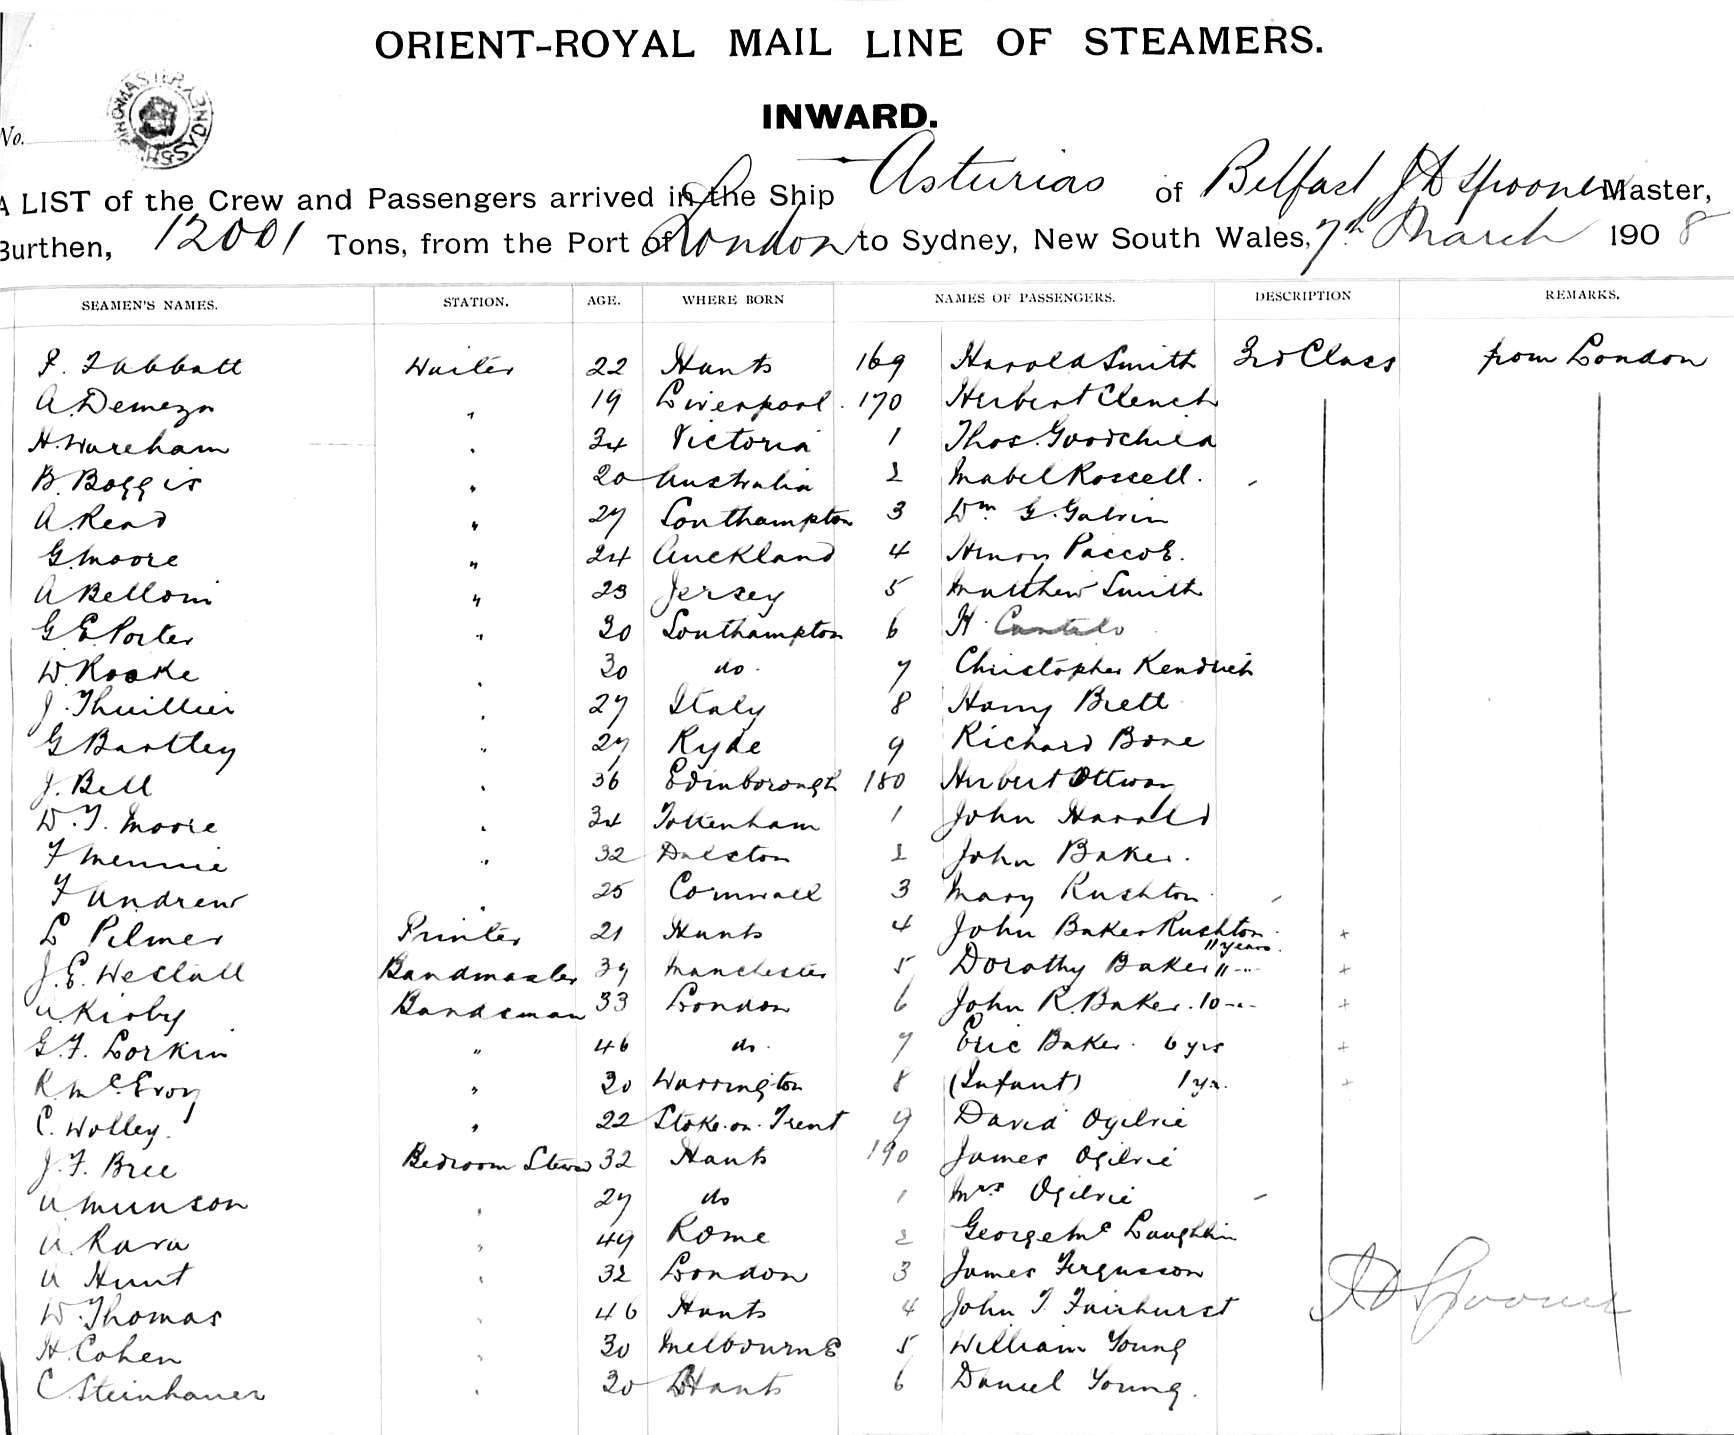 ORIENT-ROYAL MAIL LINE OF STEAMERS.
INWARD.
No.
A LIST of the Crew and Passengers arrived in the Ship Asturias of Belfast J D Spooner Master,
Burthen, 12001 Tons, from the Port of London to Sydney, New South Wales, 7th March 1908
SEAMEN'S NAMES. STATION. AGE. WHERE BORN NAMES OF PASSENGERS. DESCRIPTION REMARKS.
F. Tabbatt Waiter 22 Hants 169 Harold Smith 3rd Class from London
A. Demezn " 19 Liverpool 170 Herbert Clench
H. Wareham " 34 Victoria 1 Thos. Goodchild
B. Boggis " 20 Australia 2 Mabel Rossell.
A. Read " 27 Southampton 3 Wm G. Galvin
G. Moore " 24 Auckland 4 Henry Pascoe.
A Belloni " 23 Jersey 5 Matthew Smith
G. E. Porter " 30 Southampton 6 H.
W. Rooke " 30 do. 7 Christopher Kendrick
J. Thuillier " 27 Italy 8 Harry Brett
G Bartley " 27 Ryde 9 Richard Bone
J. Bell " 36 Edinborough 180 Herbert Ottway
W. T. Moore " 34 Tottenham 1 John Harold
F Mennie " 32 Dalston 2 John Baker.
F Andrew " 25 Cornwall 3 Mary Rushton
L Pilmer Printer 21 Hants 4 John Baker Rushton 11 years. +
J. E. Westall Bandmaster 39 Manchester 5 Dorothy Baker 11 -- +
A. Kirby Bandsman 33 London 6 John R. Baker. 10 -- +
G. F. Lorkin " 46 do. 7 Eric Baker. 6 yrs +
R. McEvoy " 20 Warrington 8 (Infant) 1 yr. +
C. Wolley. " 22 Stoke-on-Trent 9 David Ogilvie
J. F. Bree Bedroom Steward 32 Hants 190 James Ogilvie
A Munson " 27 do 1 Mrs Ogilvie
A. Rava " 49 Rome 2 George Mc Laughlin
A Hunt " 32 London 3 James Fergusson
W. Thomas " 46 Hants 4 John T Fairhurst
H. Cohen " 30 Melbourne 5 William Young
C. Steinhauer " 30 Hants 6 Daniel Young.
J D Spooner